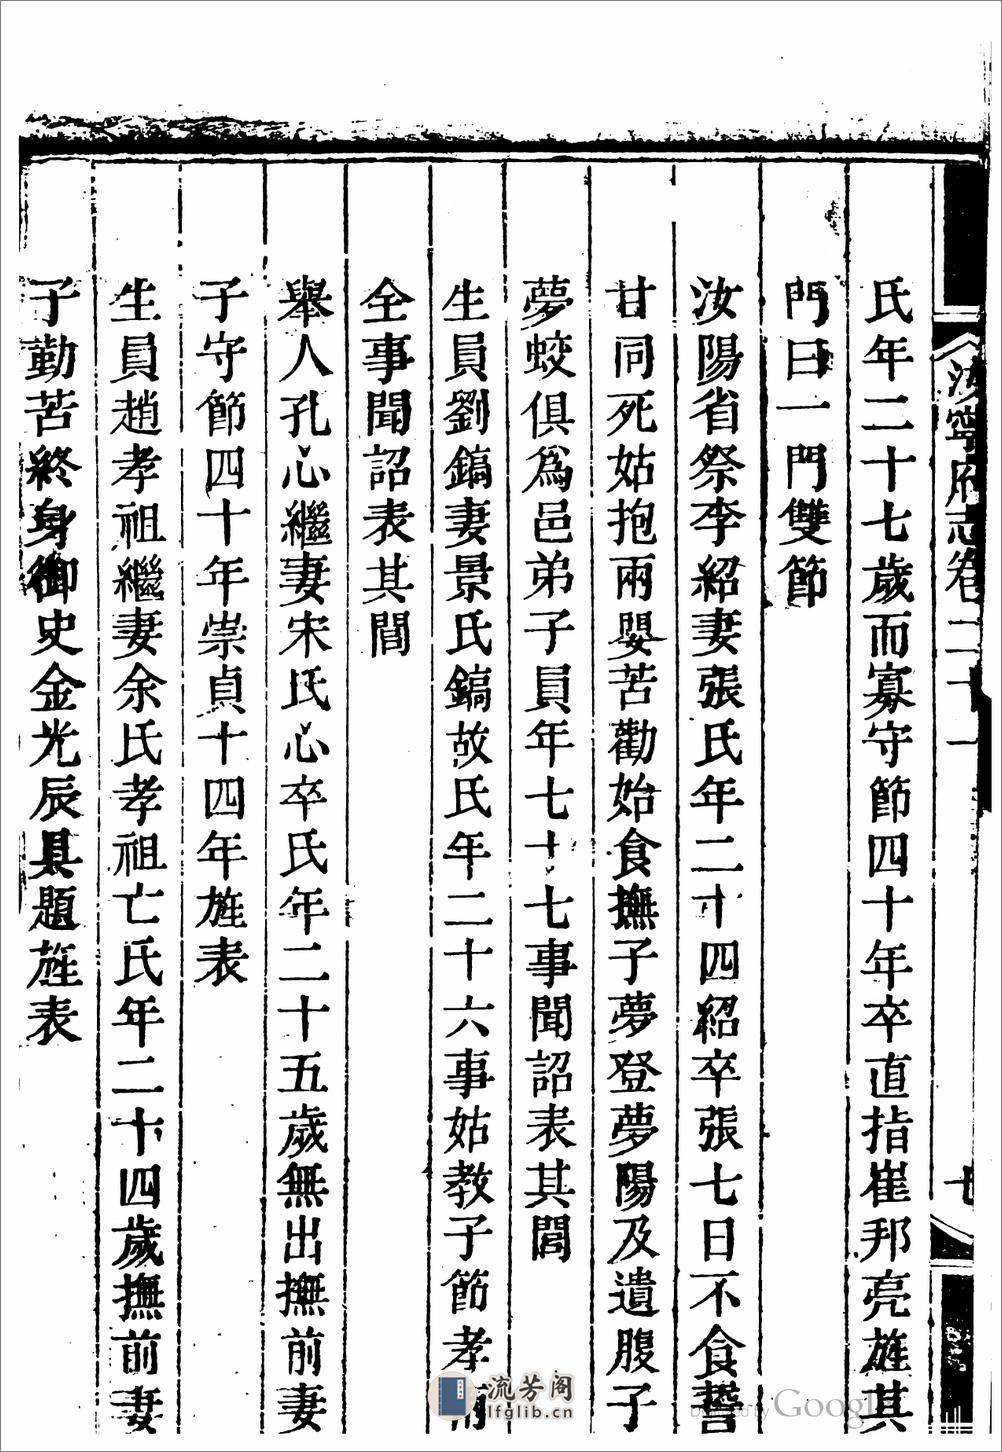 汝寧府志卷二十一
氏年二十七歲而寡守節四十年卒直指崔邦亮旌其
門曰一門雙節
汝陽省祭李紹妻張氏年二十四紹卒張七日不食誓
甘同死姑抱兩嬰苦勸始食撫子夢登夢陽及遺腹子
夢蛟俱爲邑弟子員年七十七事聞詔表其閭
生員劉鎬妻景氏鎬故氏年二十六事姑教子節孝兩
全事聞詔表其閭
舉人孔心繼妻宋氏心卒氏年二十五歲無出撫前妻
子守節四十年崇貞十四年旌表
生員趙孝祖繼妻余氏孝祖亡氏年二十四歲撫前妻
子勤苦終身御史金光辰具題旌表
流芳阁
lfglib.cn
Google